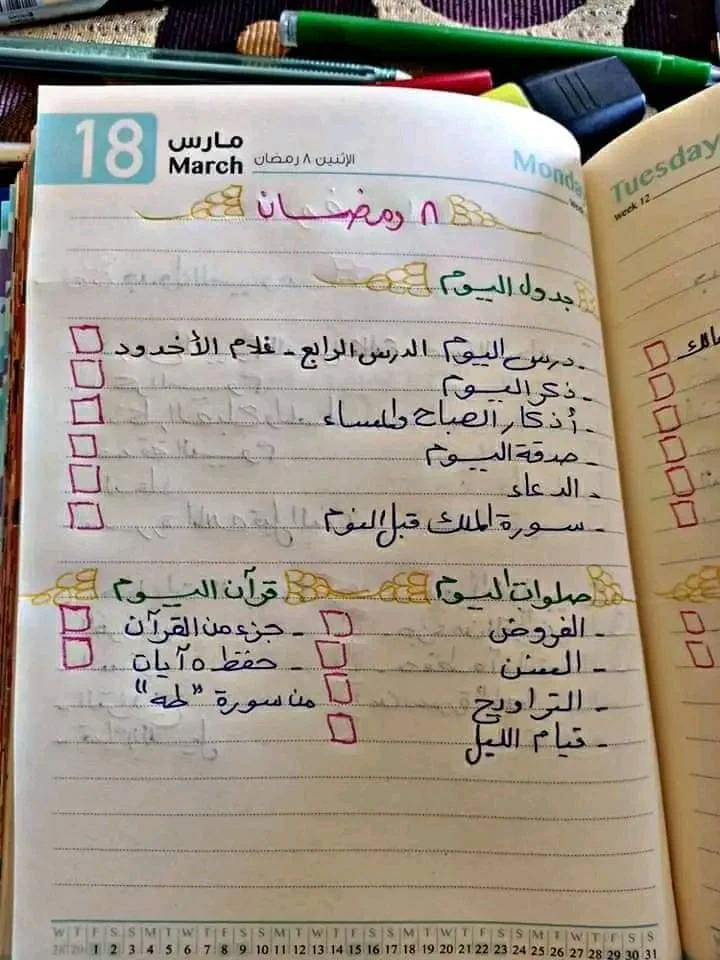 18 مارس March الإثنين ٨ رمضان Monda
٨ رمضان
جدول اليوم
- درس اليوم الدرس الرابع - غلام الأخدود
- ذكر اليوم
- أذكار الصباح والمساء
- صدقة اليوم
- الدعاء
- سورة الملك قبل النوم
صلوات اليوم
- الفروض
- السنن
- التراويح
- قيام الليل
قرآن اليوم
- جزء من القرآن
- حفظ ٥ آيات
من سورة "طه"
W T F S S M T W T F S S M T W T F S S M T W T F S S M T W T F S S
28 29 1 2 3 4 5 6 7 8 9 10 11 12 13 14 15 16 17 18 19 20 21 22 23 24 25 26 27 28 29 30 31
Tuesday
week 12